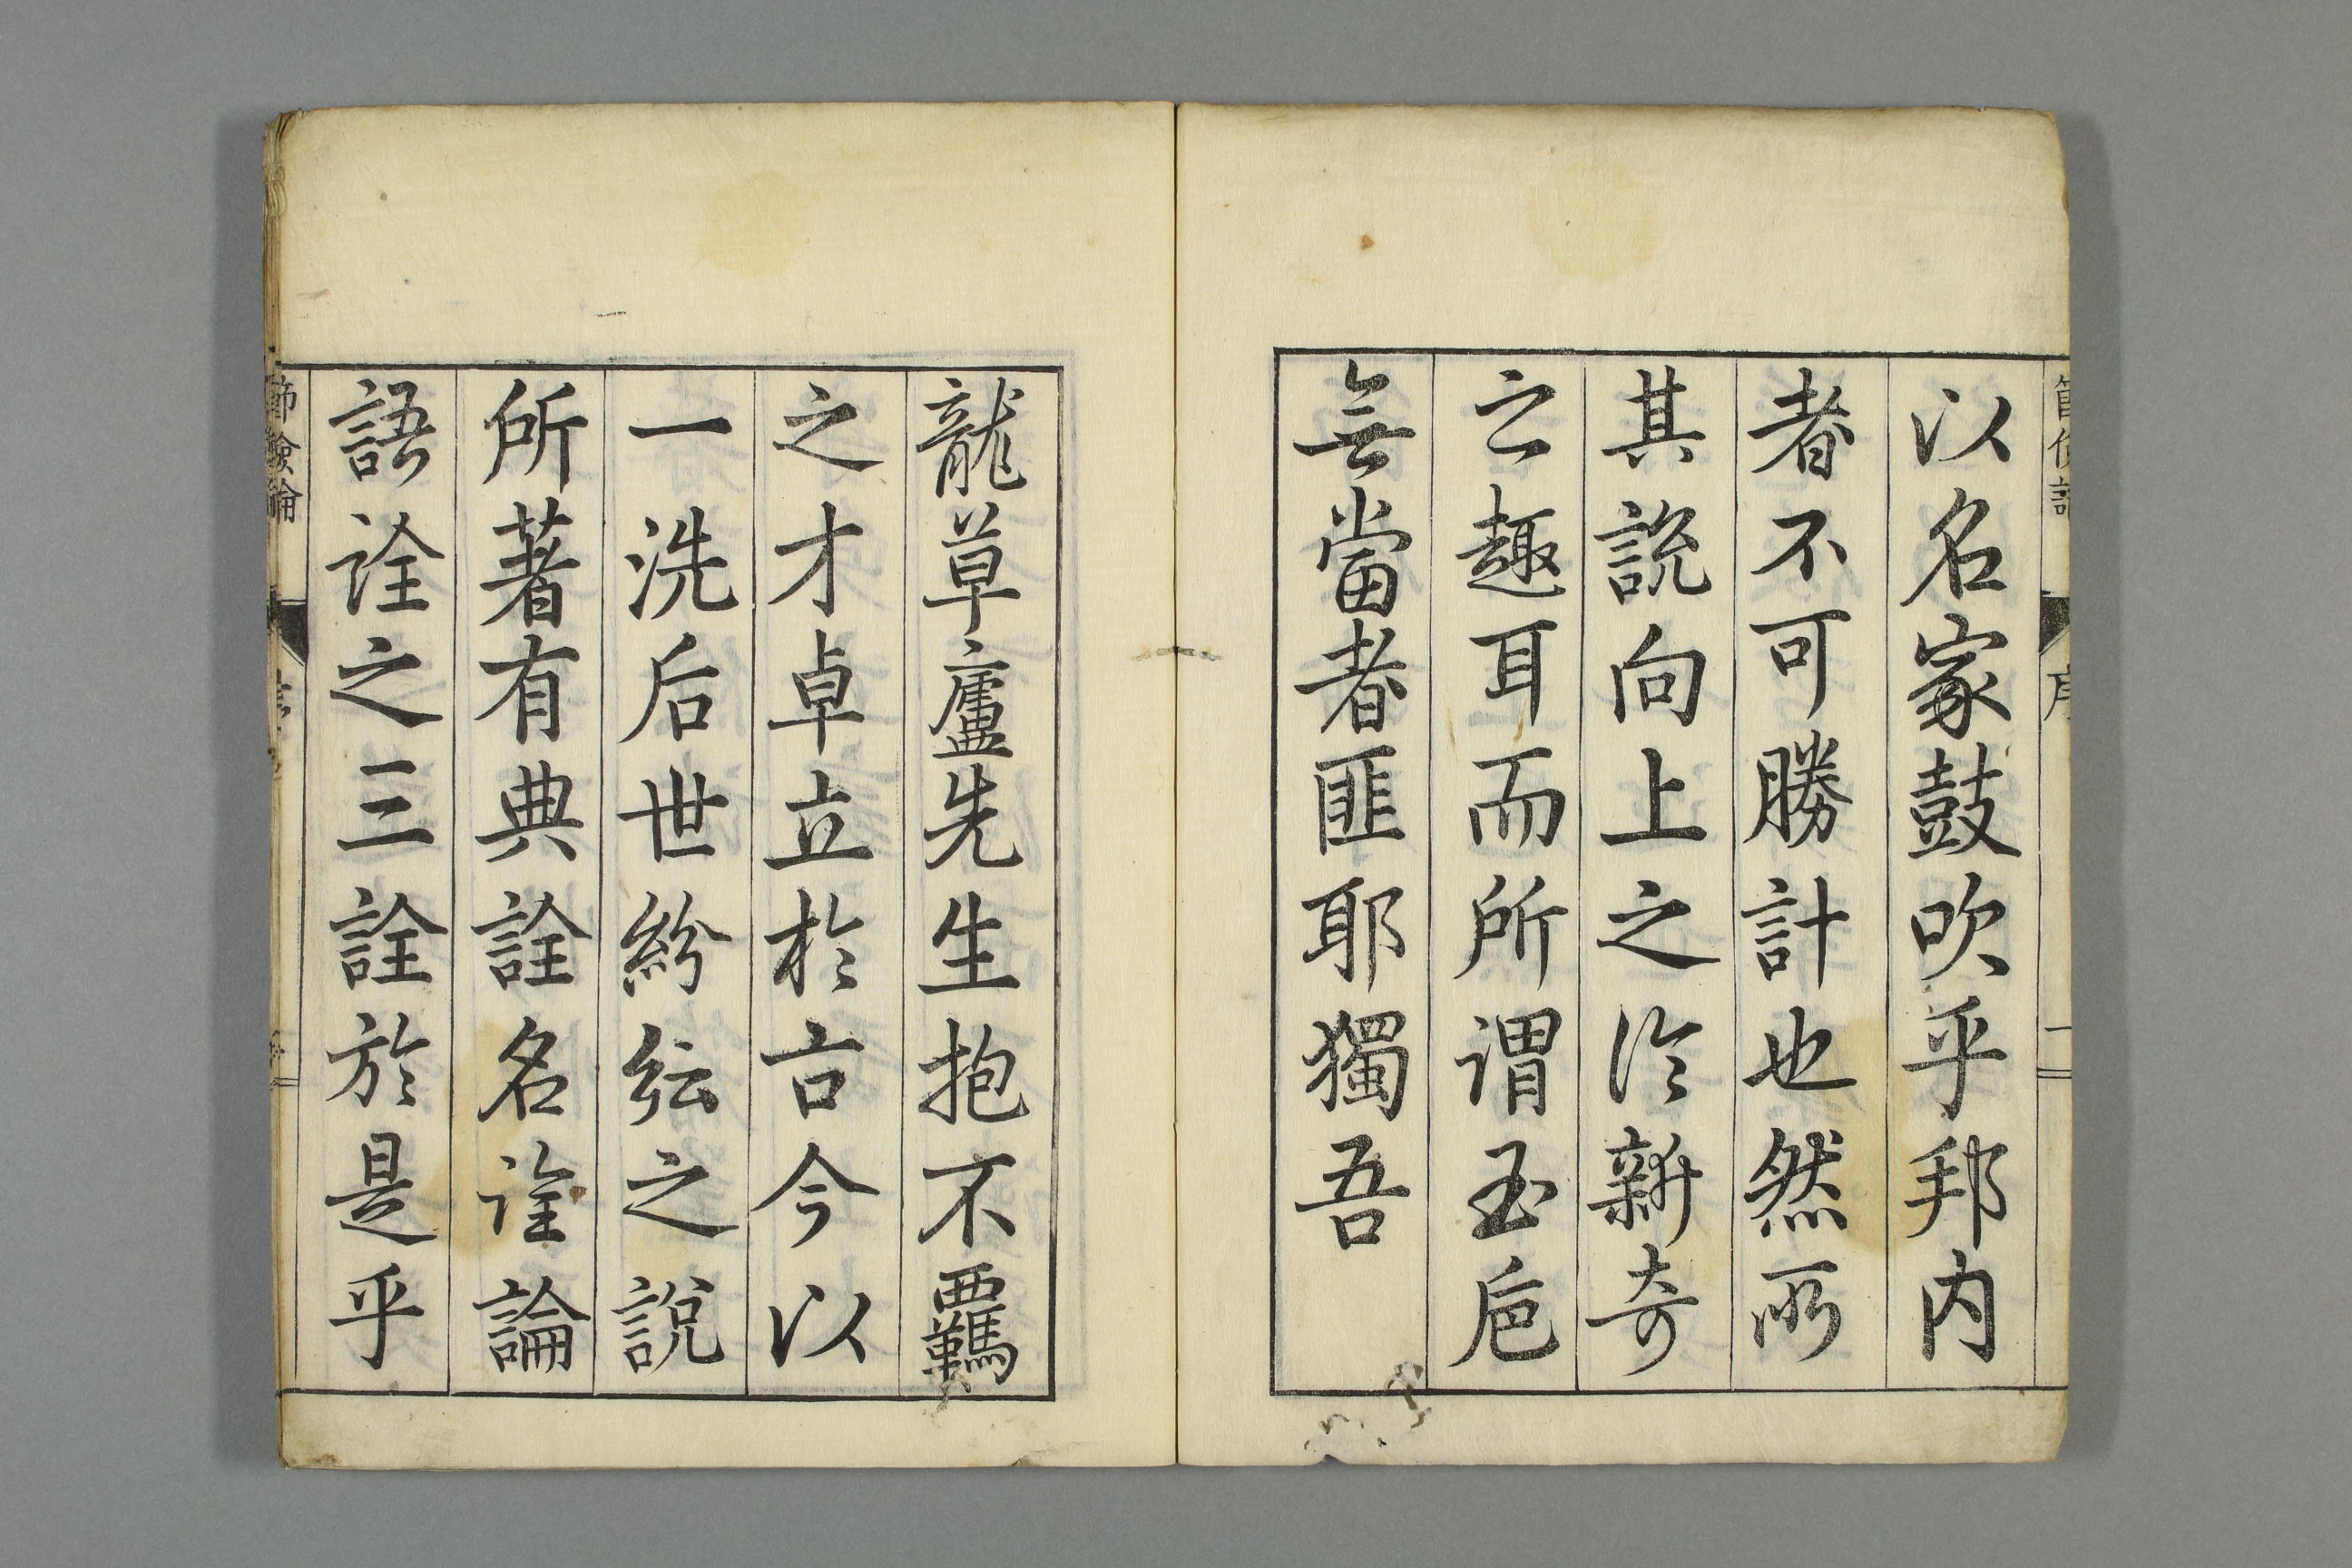 以名家鼓吹乎邦内
者不可勝計也然所
其說向上之佗新奇
之趣耳而所謂玉巵
無當者匪耶獨吾
龍草廬先生抱不羈
之才卓立於古今以
一洗后世紛紜之說
所著有典詮名詮論
語詮之三詮於是乎
序